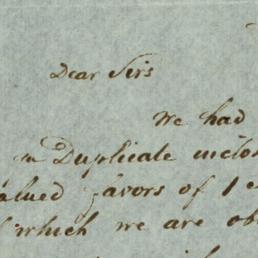 Dear Sirs
We had
in Duplicate inclos
alued favors of 1
which we are ob